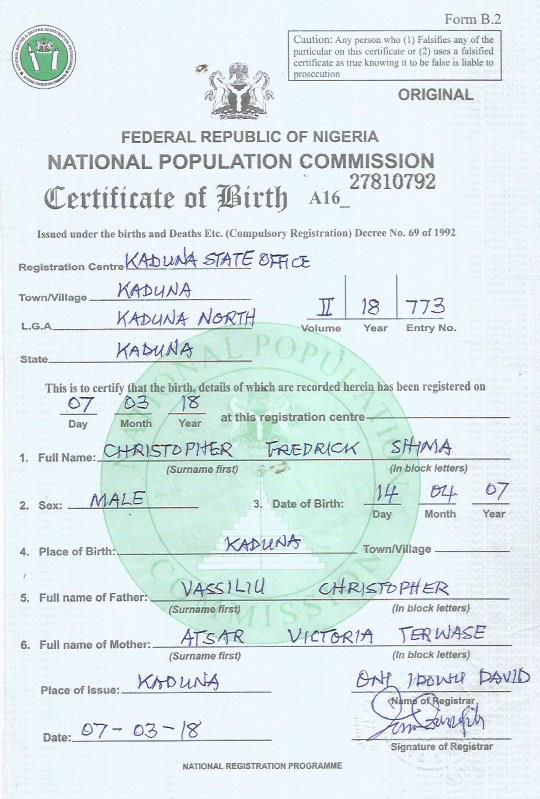 Form B.2
Caution: Any person who (1) Falsifies any of the
particular on this certificate or (2) uses a falsified
certificate as true knowing it to be false is liable to
prosecution
ORIGINAL
FEDERAL REPUBLIC OF NIGERIA
NATIONAL POPULATION COMMISSION
Certificate of Birth A16_ 27810792
Issued under the births and Deaths Etc. (Compulsory Registration) Decree No. 69 of 1992
Registration Centre KADUNA STATE OFFICE
Town/Village KADUNA
L.G.A KADUNA NORTH
II 18 773
Volume Year Entry No.
State KADUNA
This is to certify that the birth, details of which are recorded herein has been registered on
07 03 18 at this registration centre
Day Month Year
1. Full Name: CHRISTOPHER FREDRICK SHIMA
(Surname first) (In block letters)
2. Sex: MALE 3. Date of Birth: 14 04 07
Day Month Year
4. Place of Birth: KADUNA Town/Village
5. Full name of Father: VASSILIU CHRISTOPHER
(Surname first) (In block letters)
6. Full name of Mother: ATSAR VICTORIA TERWASE
(Surname first) (In block letters)
Place of Issue: KADUNA ONI IDOWU DAVID
Name of Registrar
Date: 07-03-18
Signature of Registrar
NATIONAL REGISTRATION PROGRAMME
NATIONAL POPULATION COMMISSION